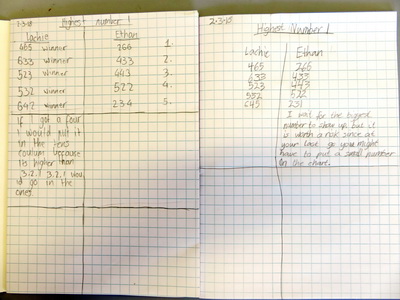 7-3-18 Highest number!
Lachie Ethan
465 winner 266 1.
633 winner 433 2.
523 winner 443 3.
532 winner 522 4.
642 winner 234 5.
If I got a four
I would put it
in the tens
coulum
its higher than
3.2.1 3.2.1
go in the
ones
2-3-18
Highest Number!
Lachie Ethan
465 266
633 433
523 443
552 522
645 231
I wait for the biggest
number to show up but it
is worth a risk since at
your last go you might
have to put a small number
in the chart.